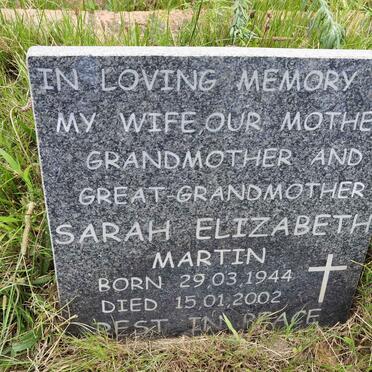 IN LOVING MEMORY
MY WIFE, OUR MOTHE
GRANDMOTHER AND
GREAT-GRANDMOTHER
SARAH ELIZABETH
MARTIN
BORN 29.03.1944
DIED 15.01.2002
REST IN PEACE